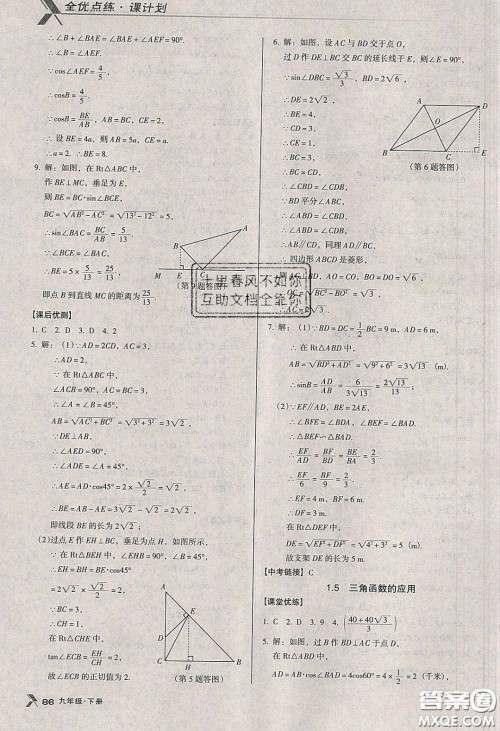 全优点练·课计划
∴∠B+∠BAE=∠AEF+∠BAE=90°.
∵cos∠AEF=4/5,
∴cosB=4/5.
∵cosB=BE/AB, AB=BC, CE=2,
∴设BE=4a, 则AB=5a, CE=a.
∴a=2. ∴BE=8.
9. 解: 如图, 在Rt△ABC中,
作BE⊥MC, 垂足为E,
则BE=BC·sin∠BCE,
BC=√(AB²-AC²)=√(13²-12²)=5,
∵sin∠BAC=BC/AB=5/13,
∴BE=5×5/13=25/13.
即点B到直线MC的距离为25/13.
(第9题答图)
【课后优测】
1. C 2. D 3. D 4. 2
5. 解: (1)∵AD=2CD, AC=3,
∴AD=2,
∵在Rt△ABC中,
∠ACB=90°, AC=BC=3,
∴∠A=∠B=45°,
AB=√(AC²+BC²)=√(3²+3²)=3√2,
∵DE⊥AB,
∴∠AED=90°, ∠ADE=∠A=45°,
∴AE=AD·cos45°=2×√2/2=√2,
∴BE=AB-AE=3√2-√2=2√2,
即线段BE的长为2√2;
(2)过点E作EH⊥BC, 垂足为H, 如图所示.
∵在Rt△BEH中, ∠EHB=90°, ∠B=45°,
∴EH=BH=BE·cos45°=2√2×√2/2=2,
∵BC=3,
∴CH=1,
在Rt△CHE中,
tan∠ECB=EH/CH=2,
故∠ECB的正切值为2.
(第5题答图)
6. 解: 如图, 设AC与BD交于点O,
过D作DE⊥BC交BC的延长线于E, 则∠E=90°.
∵sin∠DBC=√3/3, BD=2√6,
∴DE=2√2,
∵CD=3,
∴CE=1,
∴BE=4.
∴BC=3.
∴BC=CD,
∴∠CBD=∠CDB,
∵BD平分∠ABC,
∴∠ABD=∠DBC,
∴∠ABD=∠CDB,
∴AB∥CD,
同理AD∥BC,
∴四边形ABCD是菱形,
∴AC=2√3
(第6题答图)
7. 解: (1)∵BD=DC=1/2BC=9 m, AD=6 m,
在Rt△ABD中,
AB=√(BD²+AD²)=√(9²+6²)=3√13,
∴sinB=AD/AB=6/(3√13)=2√13/13;
(2)∵EF∥AD, BE=2AE,
∴∠BFE=∠BDA, ∠BEF=∠BAD.
∴△BEF∽△BAD.
∴EF/AD=BF/BD=BE/BA=2/3.
∴EF/6=BF/9=2/3.
∴EF=4 m, BF=6 m,
∴DF=3 m,
在Rt△DEF中,
DE=√(EF²+DF²)=√(4²+3²)=5 m.
故支架DE的长为5 m.
【中考链接】C
1.5 三角函数的应用
【课堂优练】
1. C 2. D 3. 9 4. (40+40√3/3)
5. 解: 如图, 过B作BD⊥AC于点D.
在Rt△ABD中, AD=AB·cos∠BAD=4cos60°=4×1/2=2 (千米),
上里春风不如你
互助文档全靠你
86 九年级·下册
答案圈
MXQE.COM